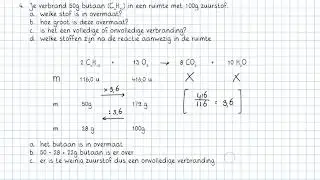 4. Je verbrand 50g butaan (C₄H₁₀) in een ruimte met 100g zuurstof.
a. welke stof is in overmaat?
b. hoe groot is deze overmaat?
c. is het een volledige of onvolledige verbranding?
d. welke stoffen zijn na de reactie aanwezig in de ruimte
2 C₄H₁₀ + 13 O₂ → 8 CO₂ + 10 H₂O
m 116,0 u 416,0 u X X
x 3,6
m 50g 179 g [ 416/116 = 3,6 ]
: 3,6
m 28 g 100g
a. het butaan is in overmaat
b. 50 - 28 = 22g butaan is er over
c. er is te weinig zuurstof dus een onvolledige verbranding